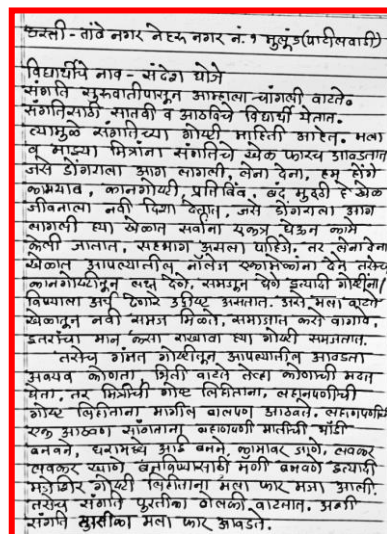 वस्ती - तांबे नगर नेहरू नगर नं. १ मुलूंड (पाटीलवाडी)
विद्यार्थीचे नाव - संदेश घोजे
संगति सुरुवातीपासून आम्हाला चांगली वाटते.
संगतिसाठी सातवी व आठविचे विद्यार्थी येतात.
त्यामुळे संगतिच्या गोष्टी माहिती आहेत. मला
व माझ्या मित्रांना संगतिचे खेळ फारच आवडतात
जसे डोंगराला आग लागली, लेना देना, हम होंगे
कामयाब, कानगोष्टी, प्रतिबिंब, बंद मुठ्ठी हे खेळ
जीवनाला नवी दिशा देतात, जसे डोंगराला आग
लागली ह्या खेळात सर्वांना एकत्र घेऊन काम
केली जातात, सहभाग असला पाहिजे. तर लेना देना
खेळात आपल्यातील नॉलेज एकामेकांना देने तसेच
कानगोष्टीतून लक्ष देणे, समजून घेणे इत्यादी गोष्टींना/
विषयाला अर्थ देणारे उद्दीष्ट असतात. असे मला वाटते
खेळातून नवी समज मिळते, समाजात कसे वागावे,
इतरांचा मान कसा राखावा ह्या गोष्टी समजतात.
तसेच गंमत गोष्टीतून आपल्यातील आवडता
अवयव कोणता, भिती वाटते तेव्हा कोणाची मदत
घेता. तर मित्रीची गोष्ट लिहीताना, लहानपणीची
गोष्ट लिहीताना मागील बालपण आठवते. लहानपणीची
एक आठवण सांगताना लहाणपणी मातीची भांडी
बनवने, घरामध्ये आई बनने, कामावर जाणे, लवकर
लवकर खाणे बनविण्यासाठी मॅगी बनवणे इत्यादी
मजेशीर गोष्टी लिहीताना मला फार मजा आली.
तसेच संगति पुस्तीका बोलकी वाटतात. अशी
संगति पुस्तीका मला फार आवडते.